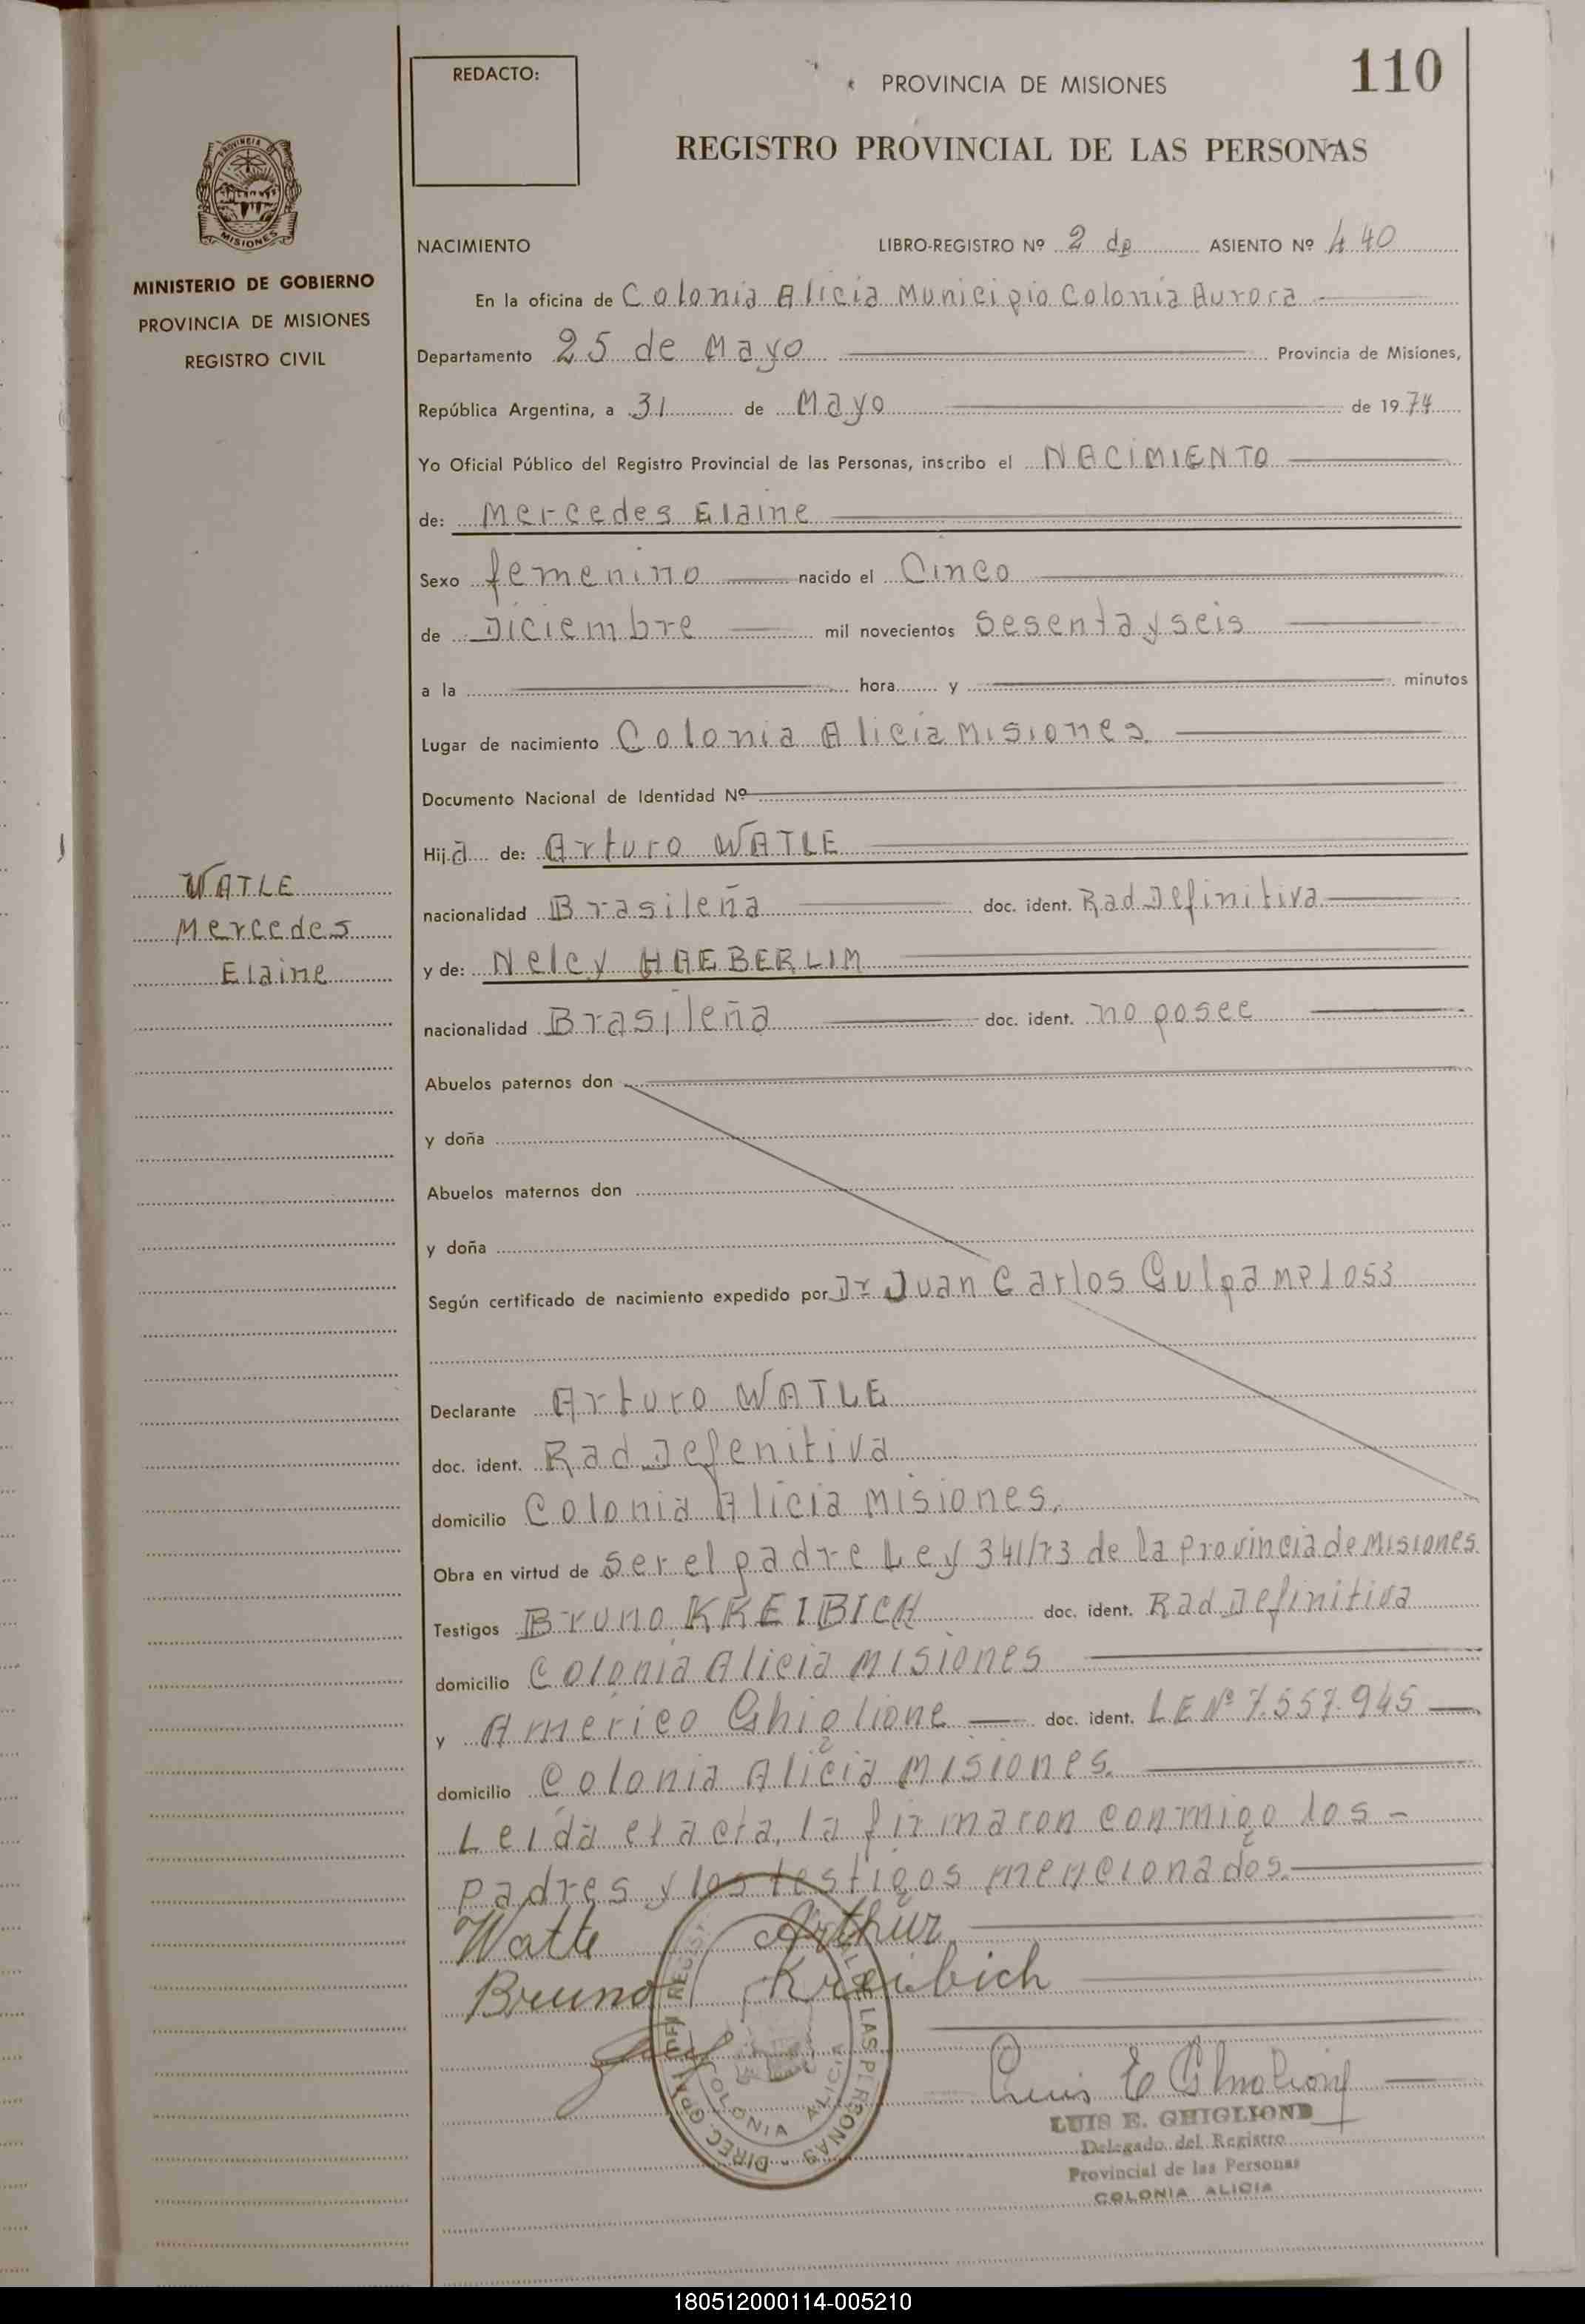 REDACTO:
PROVINCIA DE MISIONES
110
REGISTRO PROVINCIAL DE LAS PERSONAS
PROVINCIA DE
MISIONES
MINISTERIO DE GOBIERNO
PROVINCIA DE MISIONES
REGISTRO CIVIL
NACIMIENTO LIBRO-REGISTRO Nº 2 de ASIENTO Nº 440
En la oficina de Colonia Alicia Municipio Colonia Aurora
Departamento 25 de Mayo Provincia de Misiones,
República Argentina, a 31 de Mayo de 1974
Yo Oficial Público del Registro Provincial de las Personas, inscribo el NACIMIENTO
de: Mercedes Elaine
Sexo femenino nacido el Cinco
de Diciembre mil novecientos Sesenta y seis
a la hora y minutos
Lugar de nacimiento Colonia Alicia Misiones
Documento Nacional de Identidad Nº
Hija de: Arturo WATLE
WATLE
Mercedes
Elaine
nacionalidad Brasileña doc. ident. Rad Definitiva
y de: Nelcy HAEBERLIM
nacionalidad Brasileña doc. ident. no posee
Abuelos paternos don
y doña
Abuelos maternos don
y doña
Según certificado de nacimiento expedido por Dr Juan Carlos Gulpa MP 1053
Declarante Arturo WATLE
doc. ident. Rad Defenitiva
domicilio Colonia Alicia Misiones.
Obra en virtud de Ser el padre Ley 341/73 de la Provincia de Misiones
Testigos Bruno KREIBICH doc. ident. Rad Definitiva
domicilio Colonia Alicia Misiones
y Americo Ghiglione doc. ident. LE Nº 7.557.945
domicilio Colonia Alicia Misiones.
Leida el acta, la firmaron conmigo los -
padres y los testigos mencionados.
Watle Arthur
Bruno Kreibich
DIREC. GRAL. DEL REGIS. DE LAS PERSONAS
COLONIA ALICIA
LUIS E. GHIGLIONE
Delegado del Registro
Provincial de las Personas
COLONIA ALICIA
180512000114-005210